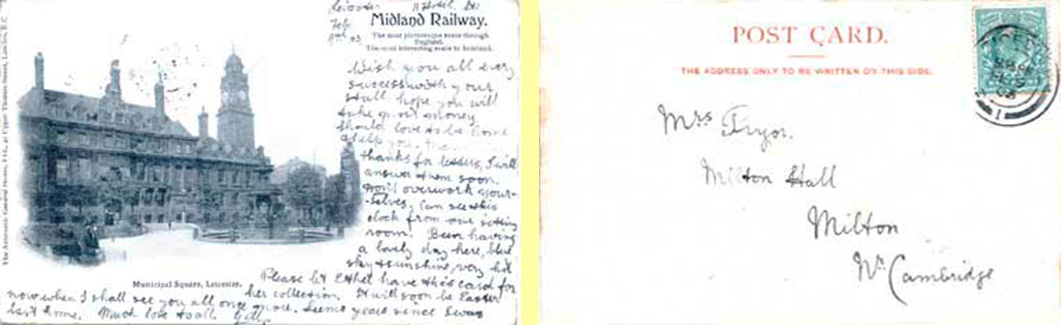 Leicester
Feb
Midland Railway.
The most picturesque route through
England.
The most interesting route to Scotland.
Wish you all every
success with your
stall hope you will
take
money
should love to be home
to help you.
thanks for letters, I will
answer them soon.
Don't overwork your-
-selves, Can see this
clock from our sitting
room. Been having
a lovely day here, blue
sky & sunshine, very hot
Please let Ethel have this card for
Municipal Square, Leicester.
her collection. It will soon be Easter
now when I shall see you all once more. Seems years since I was
last home. Much love to all
POST CARD.
THE ADDRESS ONLY TO BE WRITTEN ON THIS SIDE.
Mrs Pryor.
Milton Hall
Milton
Nr Cambridge